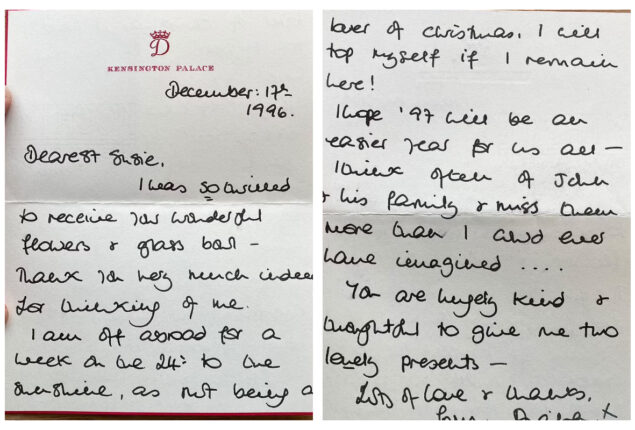 D
KENSINGTON PALACE
December: 17th
1996.
Dearest Susie,
I was so thrilled
to receive your wonderful
flowers & glass ball –
Thank you very much indeed
for thinking of me.
I am off abroad for a
week on the 24th to the
sunshine, as not being a
lover of christmas, I will
top myself if I remain
here!
I hope '97 will be an
easier year for us all –
I think often of John
& his family & miss them
more than I could ever
have imagined ....
You are hugely kind &
thoughtful to give me two
lovely presents –
Lots of love & thanks,
from